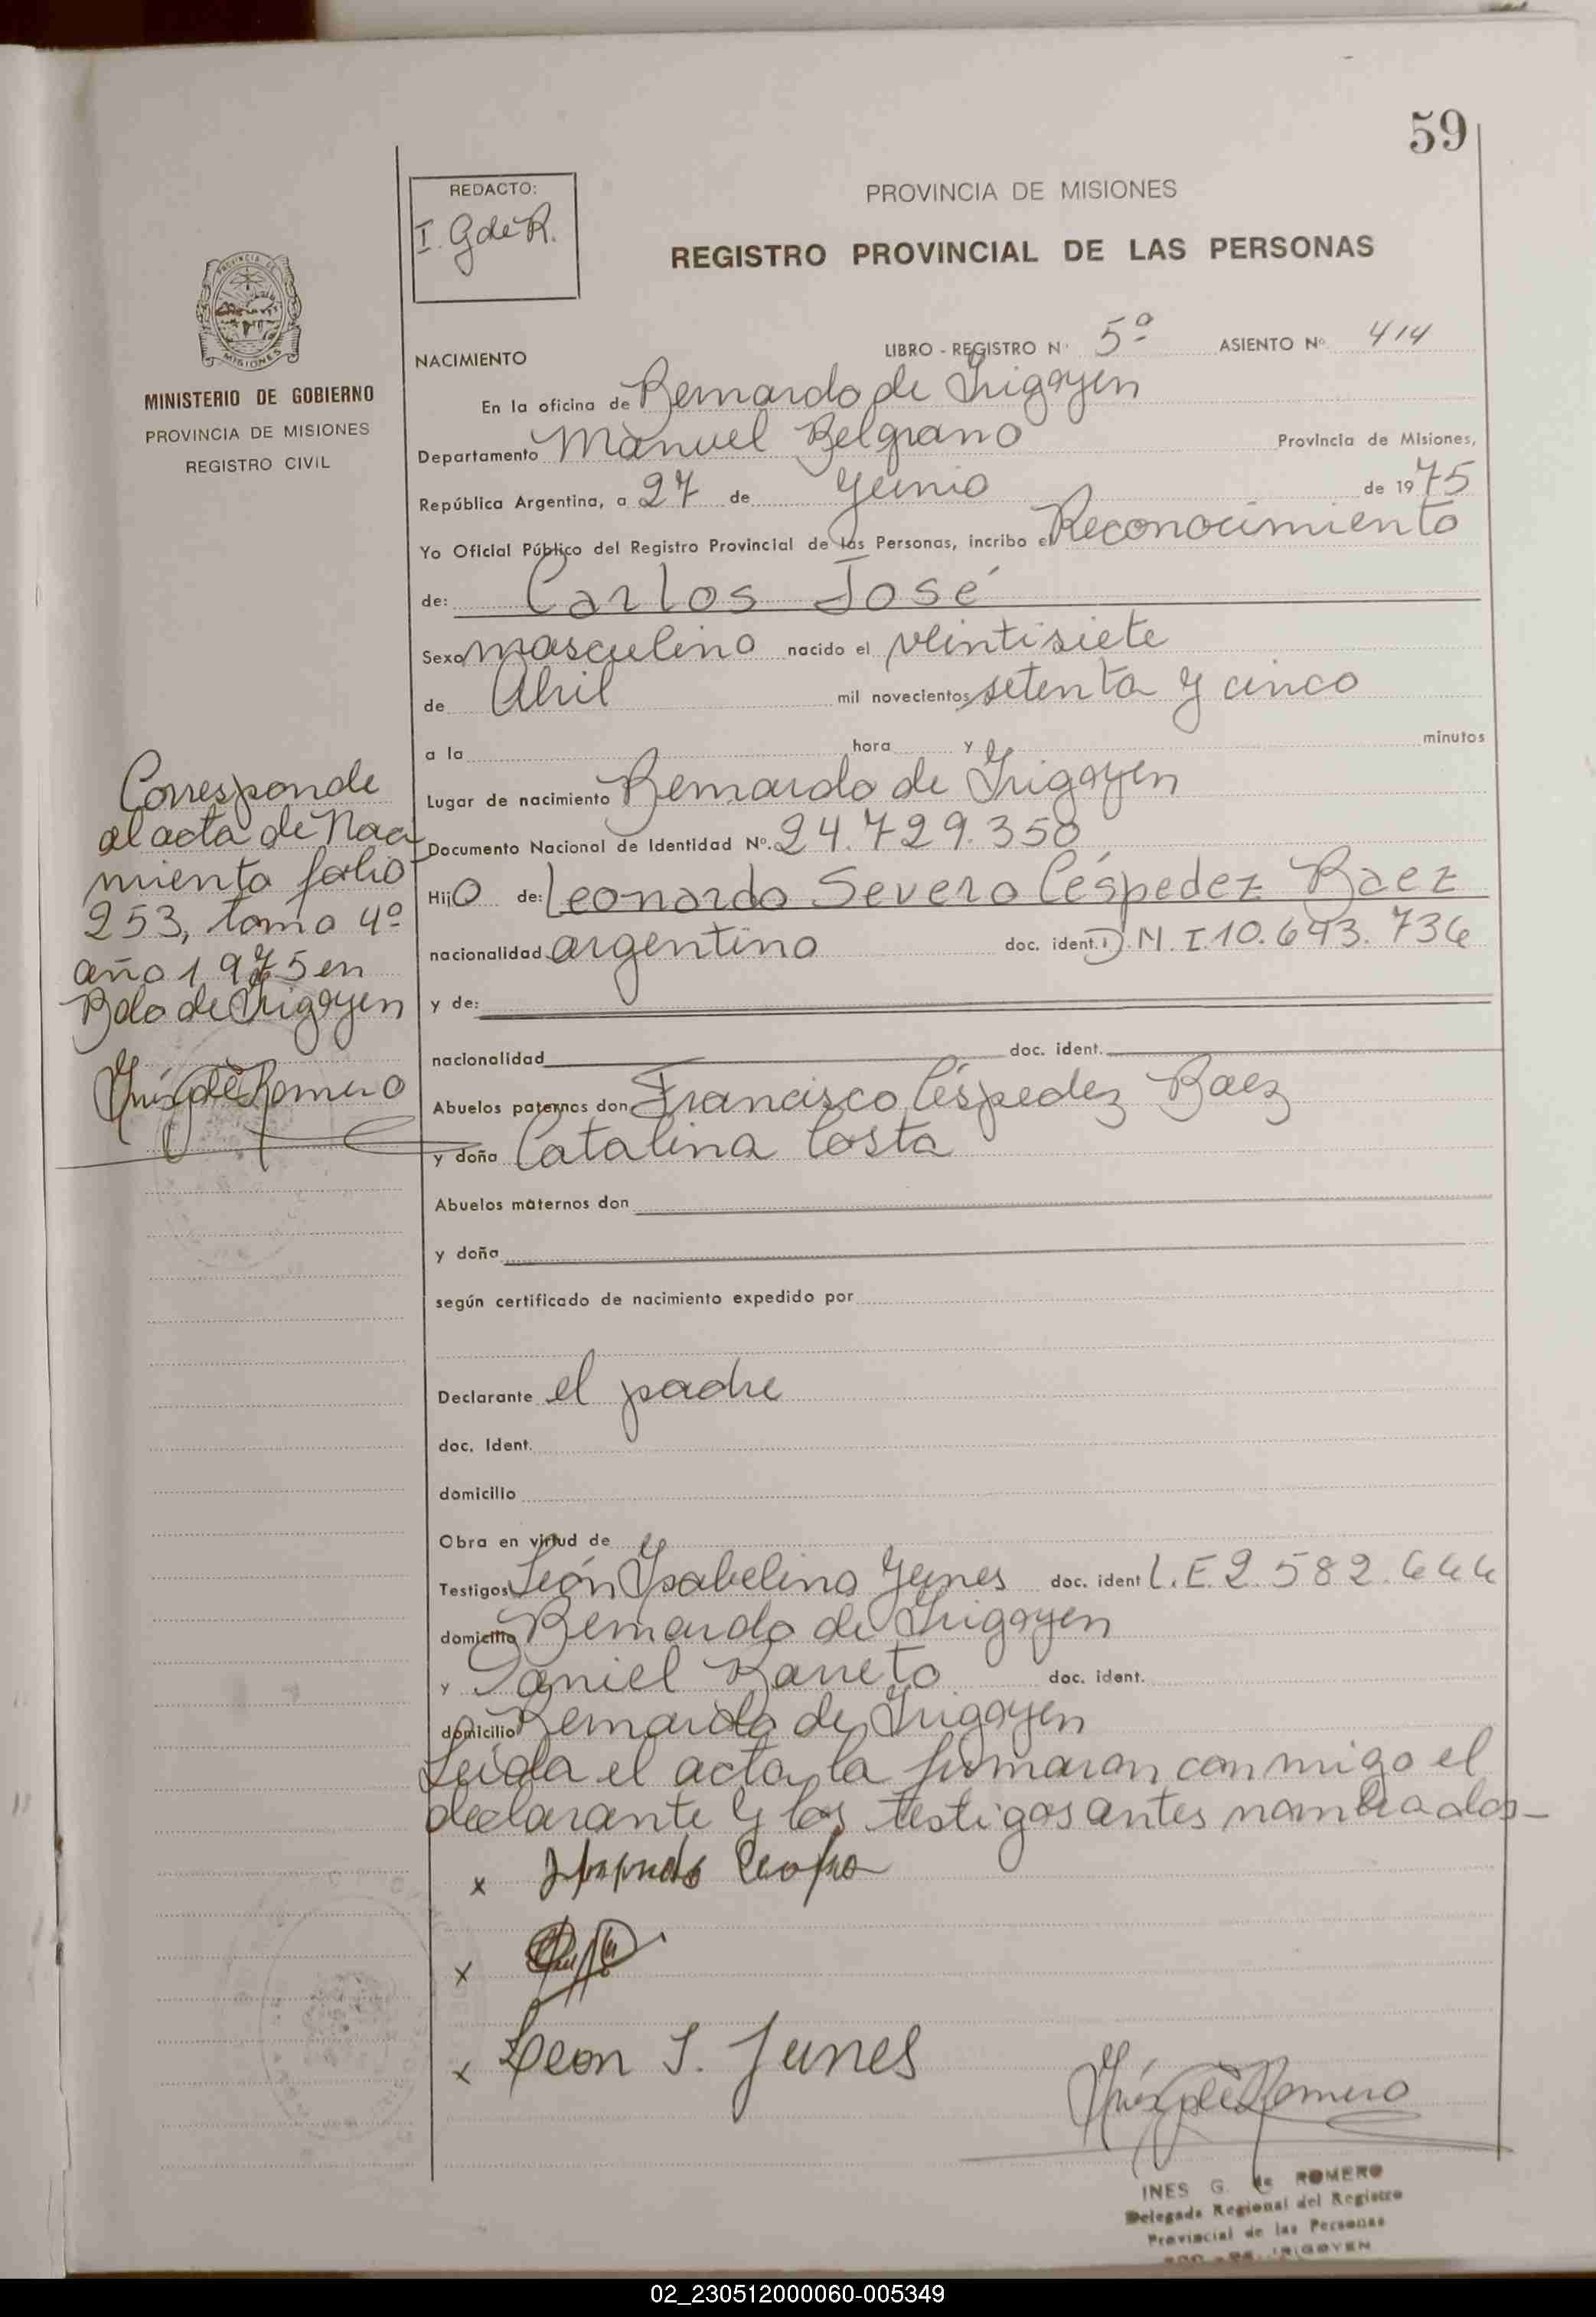 59
REDACTO:
I. G de R.
PROVINCIA DE MISIONES
REGISTRO PROVINCIAL DE LAS PERSONAS
PROVINCIA DE
MISIONES
MINISTERIO DE GOBIERNO
PROVINCIA DE MISIONES
REGISTRO CIVIL
NACIMIENTO LIBRO - REGISTRO Nº 5º ASIENTO Nº 414
En la oficina de Bernardo de Irigoyen
Departamento Manuel Belgrano Provincia de Misiones,
República Argentina, a 27 de Junio de 1975
Yo Oficial Público del Registro Provincial de las Personas, incribo el Reconocimiento
de: Carlos José
Sexo masculino nacido el veintisiete
de Abril mil novecientos setenta y cinco
a la hora y minutos
Lugar de nacimiento Bernardo de Irigoyen
Documento Nacional de Identidad Nº. 24.729.350
Hijo de: Leonardo Severo Céspedez Baez
nacionalidad argentino doc. ident. D.N.I. 10.693.736
y de:
nacionalidad doc. ident.
Abuelos paternos don Francisco Céspedez Baez
y doña Catalina Costa
Abuelos maternos don
y doña
según certificado de nacimiento expedido por
Declarante el padre
doc. Ident.
domicilio
Obra en virtud de
Testigos León Ysabelino Junes doc. ident L.E. 2.582.666
domicilio Bernardo de Irigoyen
y Daniel Barreto doc. ident.
domicilio Bernardo de Irigoyen
Leída el acta, la firmaron conmigo el
declarante y los testigos antes nombrados-
x
x
x Leon I. Junes
Inés G de Romero
INES G. de ROMERO
Delegada Regional del Registro
Provincial de las Personas
BDO. DE IRIGOYEN
Corresponde
al acta de Naci
miento folio
253, tomo 4º
año 1975 en
Bdo de Irigoyen
Inés G de Romero
02_230512000060-005349